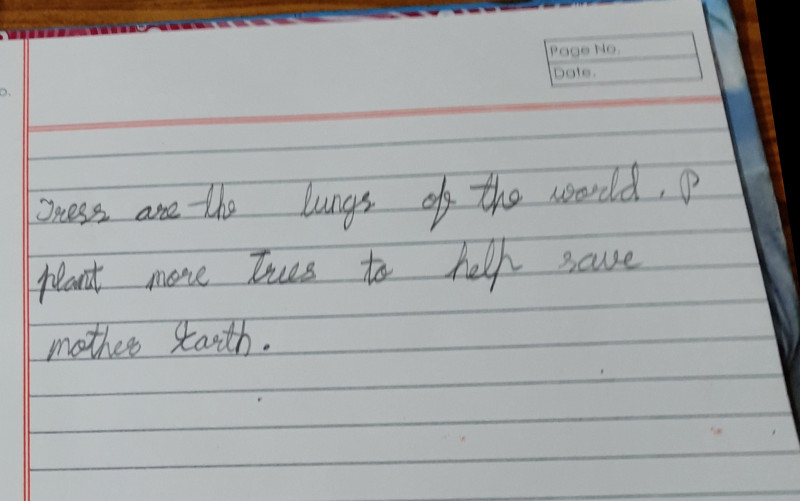 Page No.
Date.
o.
Tress are the lungs of the world. P
plant more Trees to help save
mother Earth.